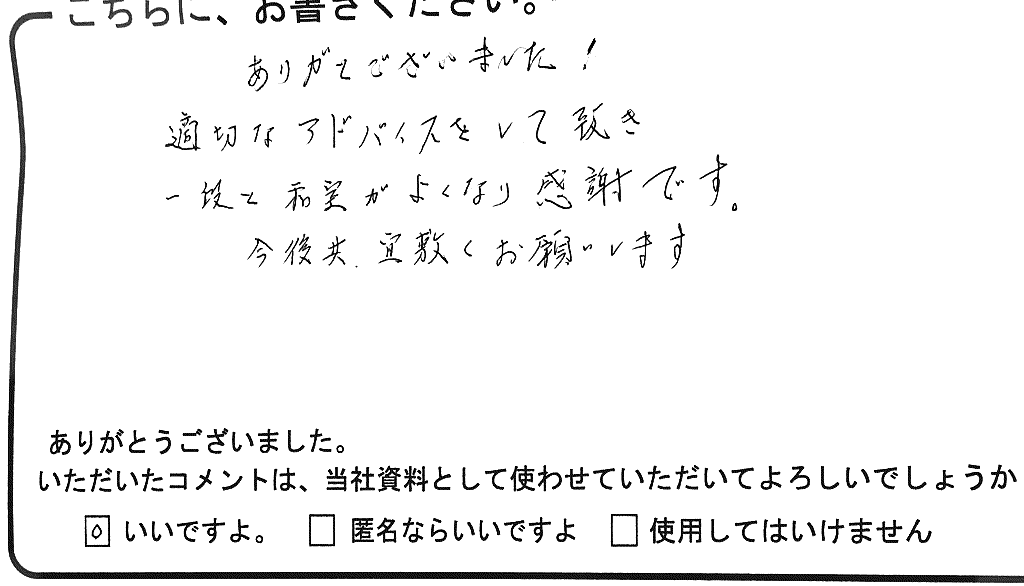 こちらに、お書きください。
ありがとございました!
適切なアドバイスをして頂き
一段と和室がよくなり感謝です。
今後共、宜敷くお願いします
ありがとうございました。
いただいたコメントは、当社資料として使わせていただいてよろしいでしょうか
いいですよ。 匿名ならいいですよ 使用してはいけません